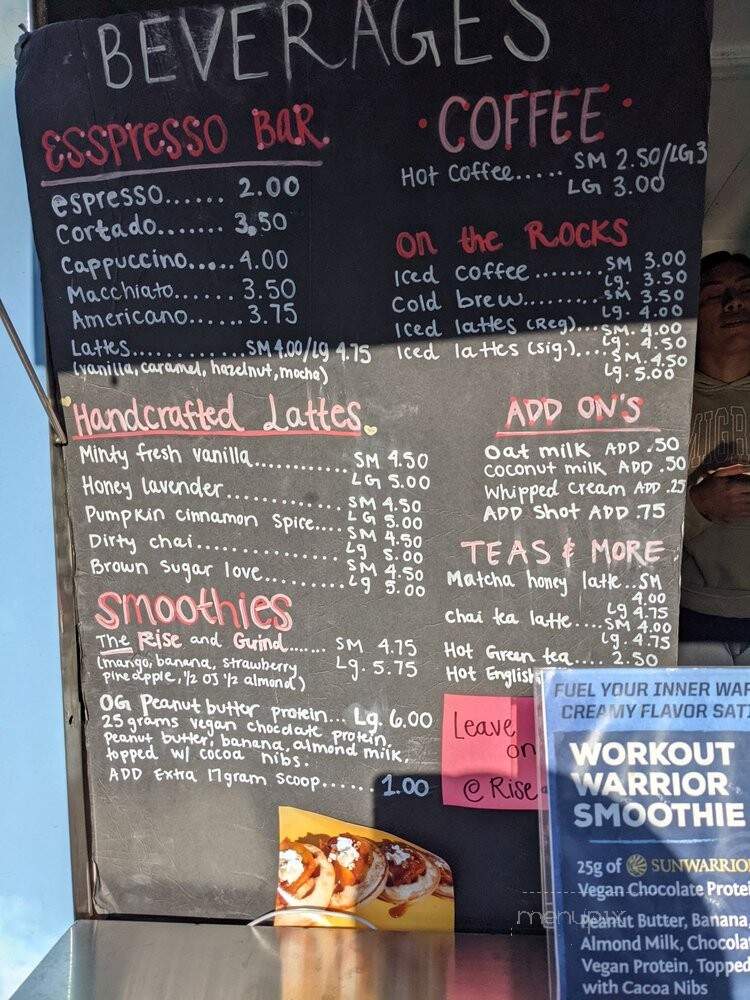 BEVERAGES
ESSPRESSO BAR
espresso...... 2.00
Cortado....... 3.50
Cappuccino..... 4.00
Macchiato...... 3.50
Americano...... 3.75
Lattes............SM 4.00/lg 4.75
(vanilla, caramel, hazelnut, mocha)
Handcrafted Lattes
Minty fresh vanilla............. SM 4.50
LG 5.00
Honey lavender................ SM 4.50
LG 5.00
Pumpkin cinnamon spice.... SM 4.50
Lg 5.00
Dirty chai.................... SM 4.50
Lg 5.00
Brown sugar love............
Smoothies
The Rise and Grind...... SM 4.75
Lg. 5.75
(mango, banana, strawberry
pineapple, 1/2 OJ 1/2 almond)
OG Peanut butter protein... Lg. 6.00
25 grams vegan chocolate protein,
Peanut butter, banana, almond milk,
topped w/ cocoa nibs.
ADD Extra 17gram scoop...... 1.00
· COFFEE ·
Hot Coffee..... SM 2.50/LG 3
LG 3.00
On the ROCKS
Iced coffee ........ SM 3.00
Lg. 3.50
Cold brew.......... SM 3.50
Lg. 4.00
Iced lattes (Reg).... SM. 4.00
Lg. 4.50
Iced lattes (sig.).... SM. 4.50
Lg. 5.00
ADD ON'S
Oat milk ADD .50
Coconut milk ADD .50
Whipped Cream ADD .25
ADD Shot ADD .75
TEAS & MORE
Matcha honey latte.. SM
4.00
Lg 4.75
Chai tea latte.... SM 4.00
Lg. 4.75
Hot Green tea.... 2.50
Hot English
Leave
on
@ Rise
FUEL YOUR INNER WAR
CREAMY FLAVOR SATI
WORKOUT
WARRIOR
SMOOTHIE
25g of SUNWARRIO
Vegan Chocolate Protei
Peanut Butter, Banana,
Almond Milk, Chocolat
Vegan Protein, Topped
with Cacao Nibs
menupix